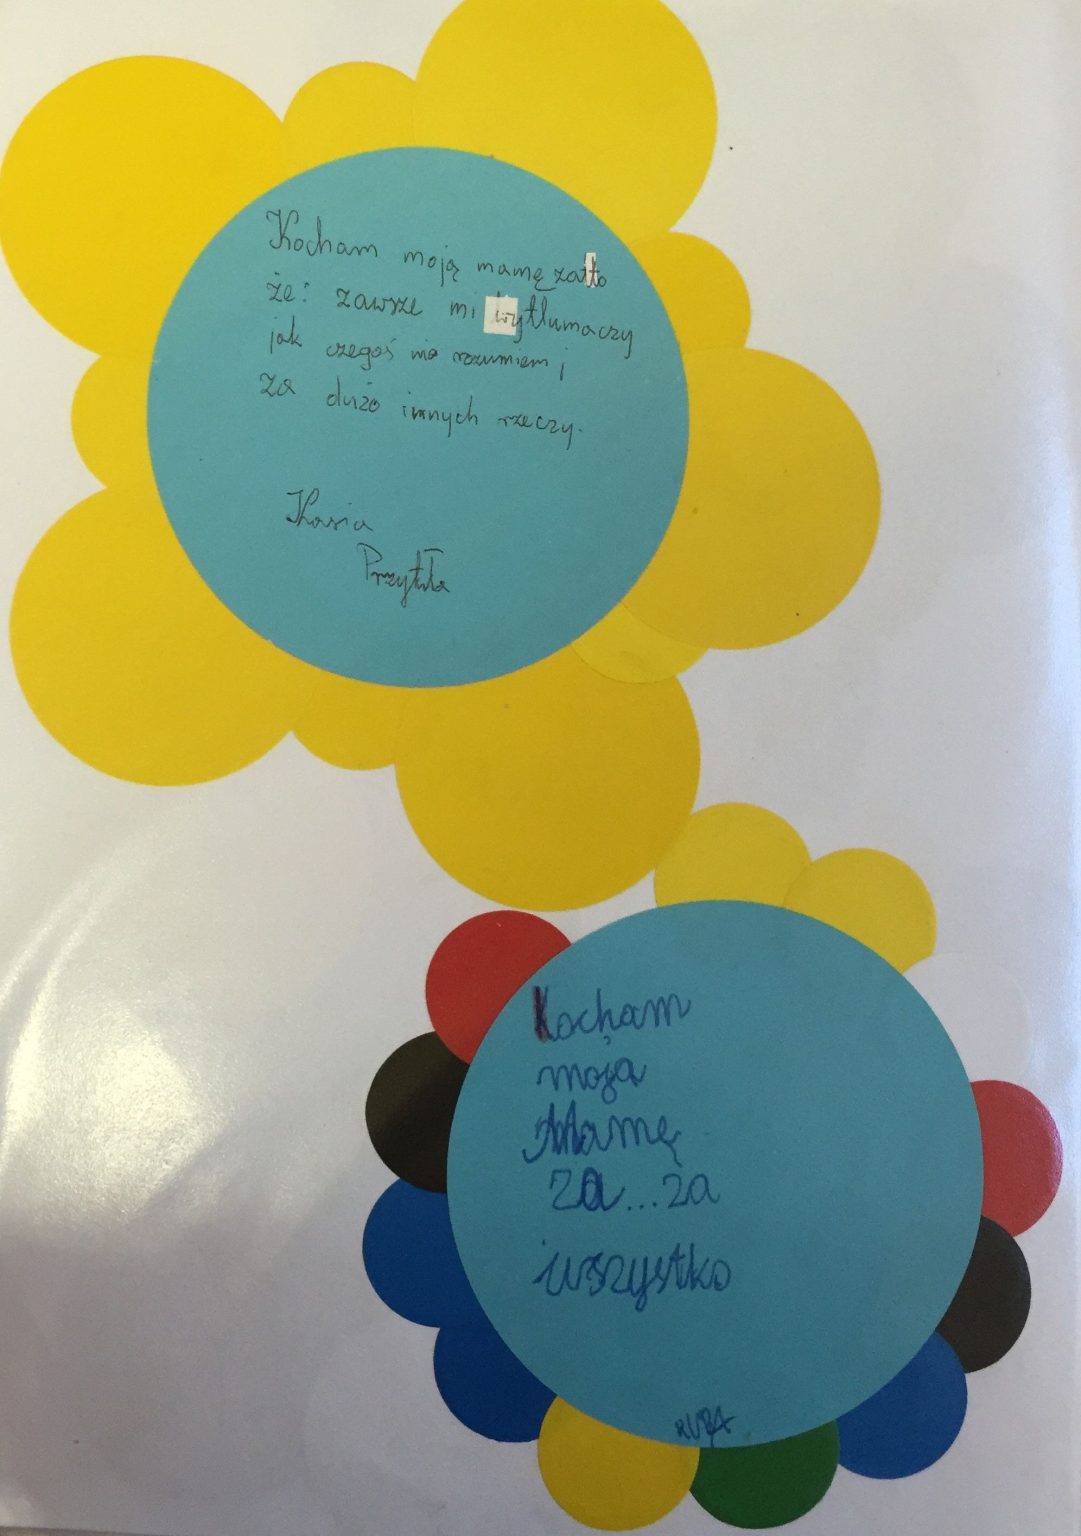 Kocham moją mamę za to
że: zawsze mi wytłumaczy
jak czegoś nie rozumiem i
za dużo innych rzeczy.
Kasia
Przytuła
Kocham
moja
Mamę
za...za
wszystko